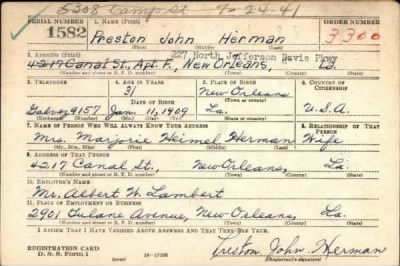 5308 Camp St 9-24-41
SERIAL NUMBER 1. NAME (Print) ORDER NUMBER
1582 Preston John Herman 3300
(First) (Middle) (Last)
2. ADDRESS (Print) 227 North Jefferson Davis Pkwy
4217 Canal St., Apt. F., New Orleans, La.
(Number and street or R. F. D. number) (Town) (County) (State)
3. TELEPHONE 4. AGE IN YEARS 5. PLACE OF BIRTH 6. COUNTRY OF CITIZENSHIP
31 New Orleans
DATE OF BIRTH (Town or county)
Galvez 9157 Jan. 11, 1909 La. U.S.A.
(Exchange) (Number) (Mo.) (Day) (Yr.) (State or country)
7. NAME OF PERSON WHO WILL ALWAYS KNOW YOUR ADDRESS 8. RELATIONSHIP OF THAT PERSON
Mrs. Marjorie Heimel Herman Wife
(Mr., Mrs., Miss) (First) (Middle) (Last)
9. ADDRESS OF THAT PERSON
4217 Canal St., New Orleans, La.
(Number and street or R. F. D. number) (Town) (County) (State)
10. EMPLOYER'S NAME
Mr. Albert W. Lambert
11. PLACE OF EMPLOYMENT OR BUSINESS
2901 Tulane Avenue, New Orleans, La.
(Number and street or R. F. D. number) (Town) (County) (State)
I AFFIRM THAT I HAVE VERIFIED ABOVE ANSWERS AND THAT THEY ARE TRUE.
REGISTRATION CARD
D. S. S. Form 1 (over) 16-17105 Preston John Herman
(Registrant's signature)